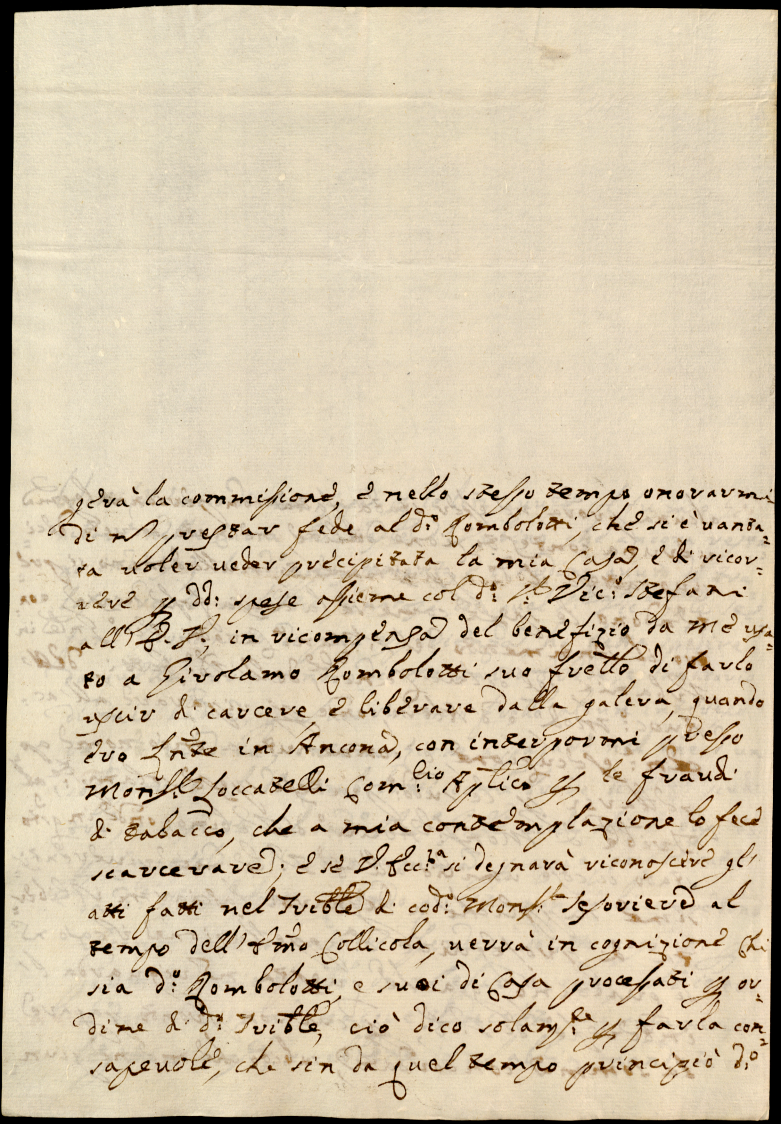 gerà la commissione, e nello stesso tempo onorarmi
di nō prestar fede al d.º Rombolotti, che si è vanta=
ta voler veder precipitata la mia Casa, e di ricor=
rere p dd: spese assieme col d.º S.r Vic.º Stefani
all' E.V., in ricompensa del benefizio da me usa=
to a Girolamo Rombolotti suo frello di farlo
uscir di carcere, e liberare dalla galera, quando
ero in Ancona, con interpormi presso
Mons.r Loccatelli Com.rio Aplico p le fraudi
di tabacco, che a mia contemplazione lo fece
scarcerare; e se V. Ecc.za si degnarà riconoscere gl'
atti fatti nel Trible di cod.º Mons.r Tesoriere al
tempo dell' Emo Collicola, verrà in cognizione chi
sia d.º Rombolotti, e suoi di Casa processati p or=
dine di d.º Trible, ciò dico solam.te p farla con=
sapevole, che sin da quel tempo principiò d.º